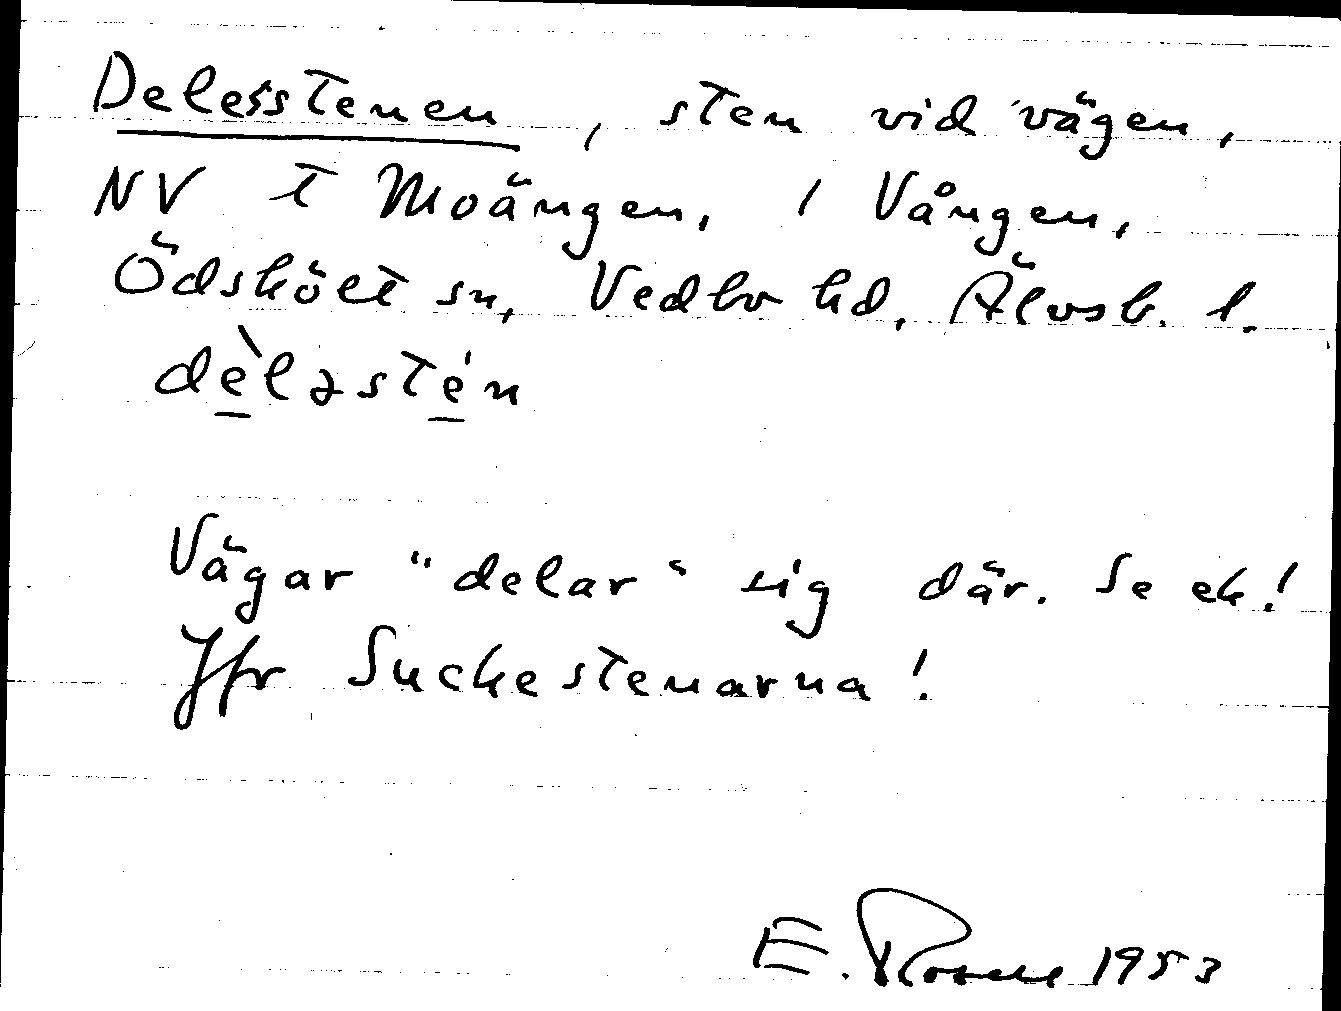 Delesstenen, sten vid vägen,
NV t Moängen, 1 Vången,
Ödskölt sn, Vedbo hd, Älvsb. l.
dèləstén
Vägar "delar" sig där. Se ek!
Jfr Suckestenarna!
E. 1953